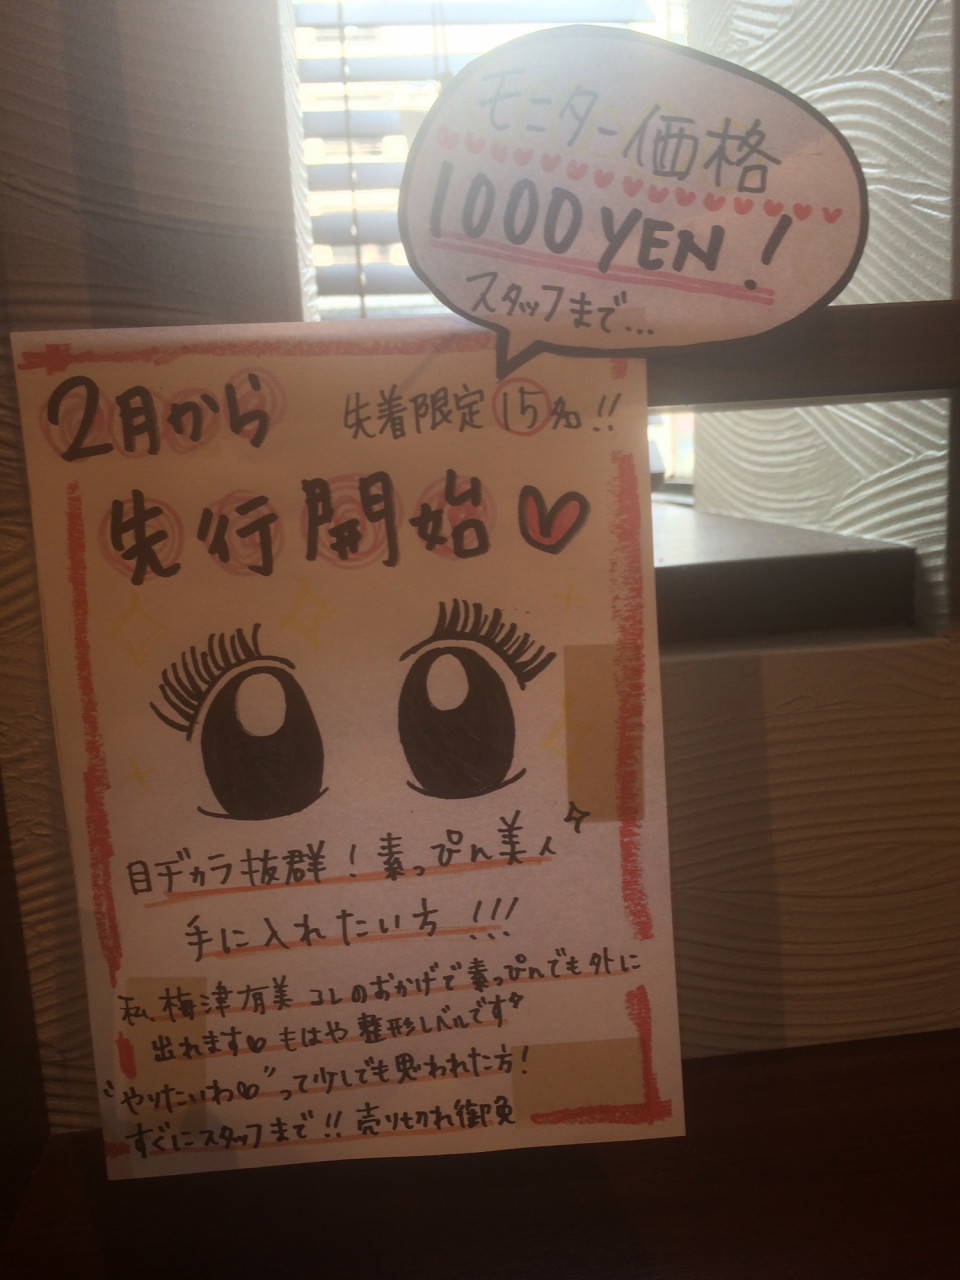 モニター価格
1000 YEN!
スタッフまで…
2月から
先着限定15名!!
先行開始
目ヂカラ抜群!素っぴん美人
手に入れたい方!!!
私、梅津有美 コレのおかげで素っぴんでも外に
出れます♡もはや整形レベルです
"やりたいわ♡"って少しでも思われた方!
すぐにスタッフまで!!売り切れ御免